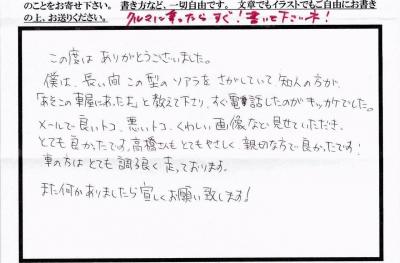 のことをお寄せ下さい。 書き方など、一切自由です。 文章でもイラストでもご自由にお書き
の上、お送りください。 クルマに乗ったらすぐ！書いて下さいネ！
この度は ありがとうございました。
僕は、長い間 この型の ソアラを さがしていて 知人の方が、
「あそこの車屋にあったよ」と教えて下さり、すぐ電話したのがキッカケでした。
メールで良いトコ、悪いトコ、くわしい画像など見せていただき、
とても良かったです。高橋さんもとてもやさしく 親切な方で良かったです！
車の方はとても調子良く走っております。
また何かありましたら宜しくお願い致します！